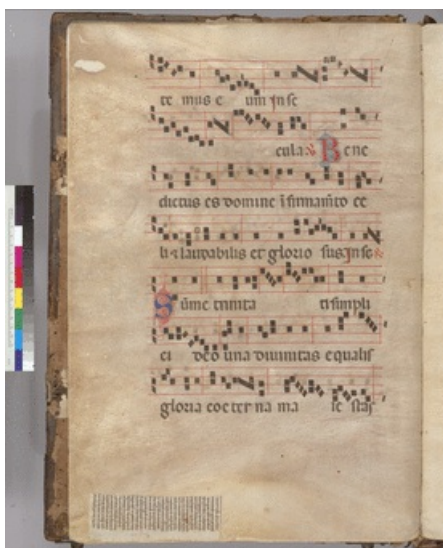 te mus e um in se
cula: Bene
dictus es domine ĩ firmam̃to ce
li ⁊ laudabilis et glorio sus in se
Sũme trinita ti simpli
ci deo una divinitas equalis
gloria coeter na ma ie stas